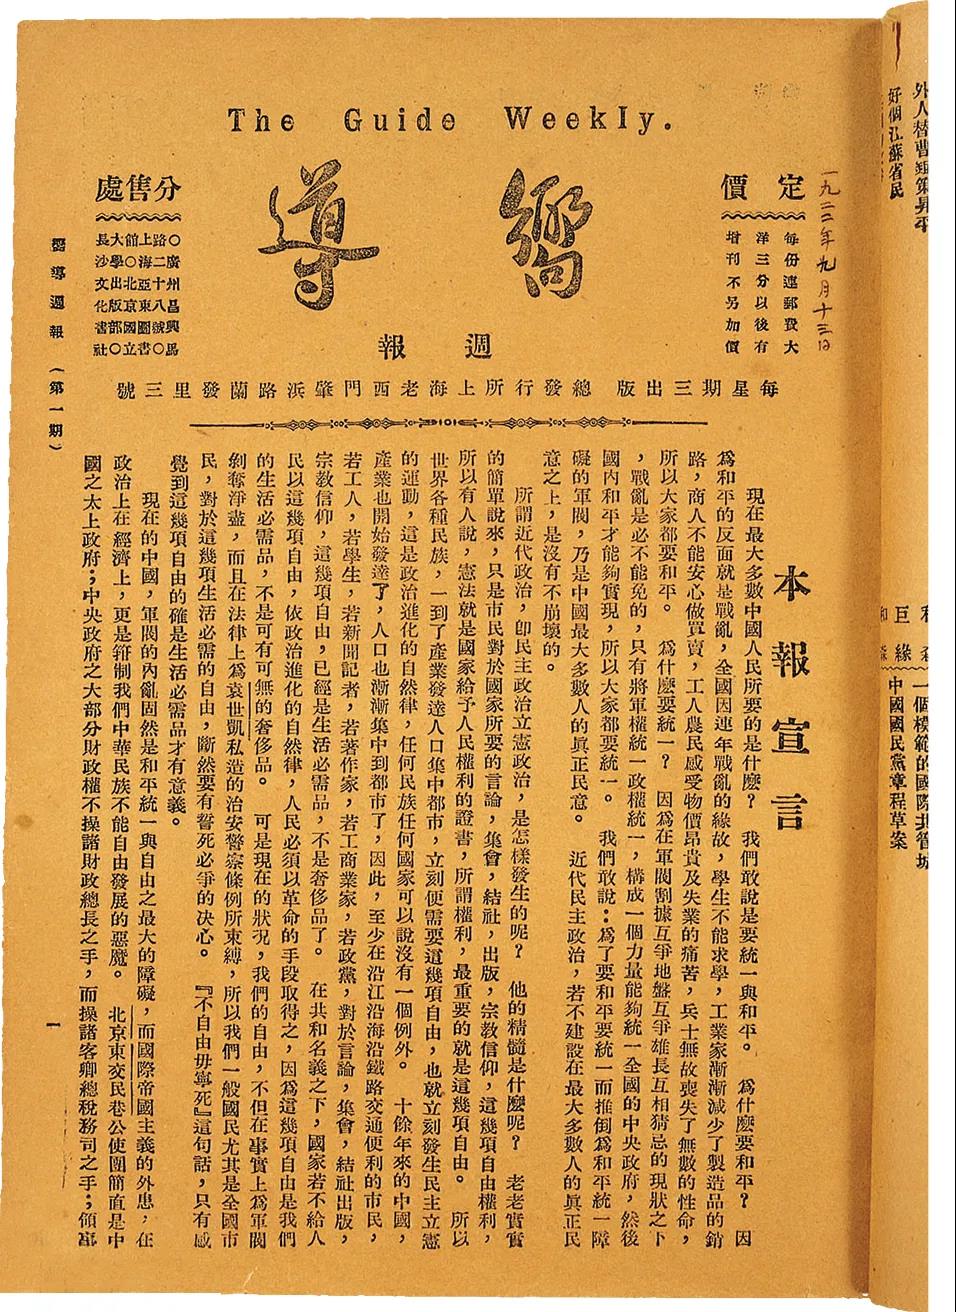 The Guide Weekly.
嚮導
週報
定價
每份連郵費大
洋三分以後有
增刊不另加價
一九二二年九月十三日
分售處
○廣州昌興馬
路二十八號○
上海亞東圖書
館○北京國立
大學出版部○
長沙文化書社
每星期三出版 總發行所上海老西門肇浜路蘭發里三號
本報宣言
現在最大多數中國人民所要的是什麽? 我們敢說是要統一與和平。 爲什麽要和平? 因
爲和平的反面就是戰亂,全國因連年戰亂的緣故,學生不能求學,工業家漸漸減少了製造品的銷
路,商人不能安心做買賣,工人農民感受物價昂貴及失業的痛苦,兵士無故喪失了無數的性命,
所以大家都要和平。 爲什麽要統一? 因爲在軍閥割據互爭地盤互爭雄長互相猜忌的現狀之下
,戰亂是必不能免的,只有將軍權統一政權統一,構成一個力量能夠統一全國的中央政府,然後
國內和平才能夠實現,所以大家都要統一。 我們敢說:爲了要和平要統一而推倒爲和平統一障
礙的軍閥,乃是中國最大多數人的眞正民意。 近代民主政治,若不建設在最大多數人的眞正民
意之上,是沒有不崩壞的。
所謂近代政治,卽民主政治立憲政治,是怎樣發生的呢? 他的精髓是什麽呢? 老老實實
的簡單說來,只是市民對於國家所要的言論,集會,結社,出版,宗教信仰,這幾項自由權利,
所以有人說,憲法就是國家給予人民權利的證書,所謂權利,最重要的就是這幾項自由。 所以
世界各種民族,一到了產業發達人口集中都市,立刻便需要這幾項自由,也就立刻發生民主立憲
的運動,這是政治進化的自然律,任何民族任何國家可以說沒有一個例外。 十餘年來的中國,
產業也開始發達了,人口也漸漸集中到都市了,因此,至少在沿江沿海沿鐵路交通便利的市民,
若工人,若學生,若新聞記者,若著作家,若工商業家,若政黨,對於言論,集會,結社出版,
宗教信仰,這幾項自由,已經是生活必需品,不是奢侈品了。 在共和名義之下,國家若不給人
民以這幾項自由,依政治進化的自然律,人民必須以革命的手段取得之,因爲這幾項自由是我們
的生活必需品,不是可有可無的奢侈品。 可是現在的狀況,我們的自由,不但在事實上爲軍閥
剝奪淨盡,而且在法律上爲袁世凱私造的治安警察條例所束縛,所以我們一般國民尤其是全國市
民,對於這幾項生活必需的自由,斷然要有誓死必爭的決心。 『不自由毋寧死』這句話,只有感
覺到這幾項自由的確是生活必需品才有意義。
現在的中國,軍閥的內亂固然是和平統一與自由之最大的障礙,而國際帝國主義的外患,在
政治上在經濟上,更是箝制我們中華民族不能自由發展的惡魔。 北京東交民巷公使團簡直是中
國之太上政府;中央政府之大部分財政權不操諸財政總長之手,而操諸客卿總稅務司之手;領事
嚮導週報 (第一期)
一
好個江蘇省民
一個模範的國際共管城
中國國民黨章程草案